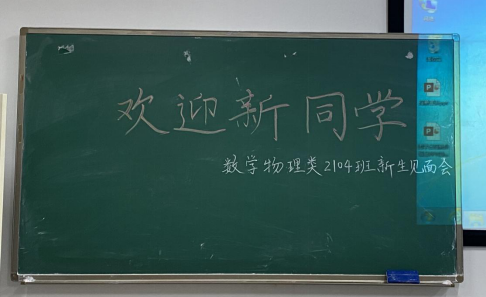 欢迎新同学
数学物理类2104班新生见面会